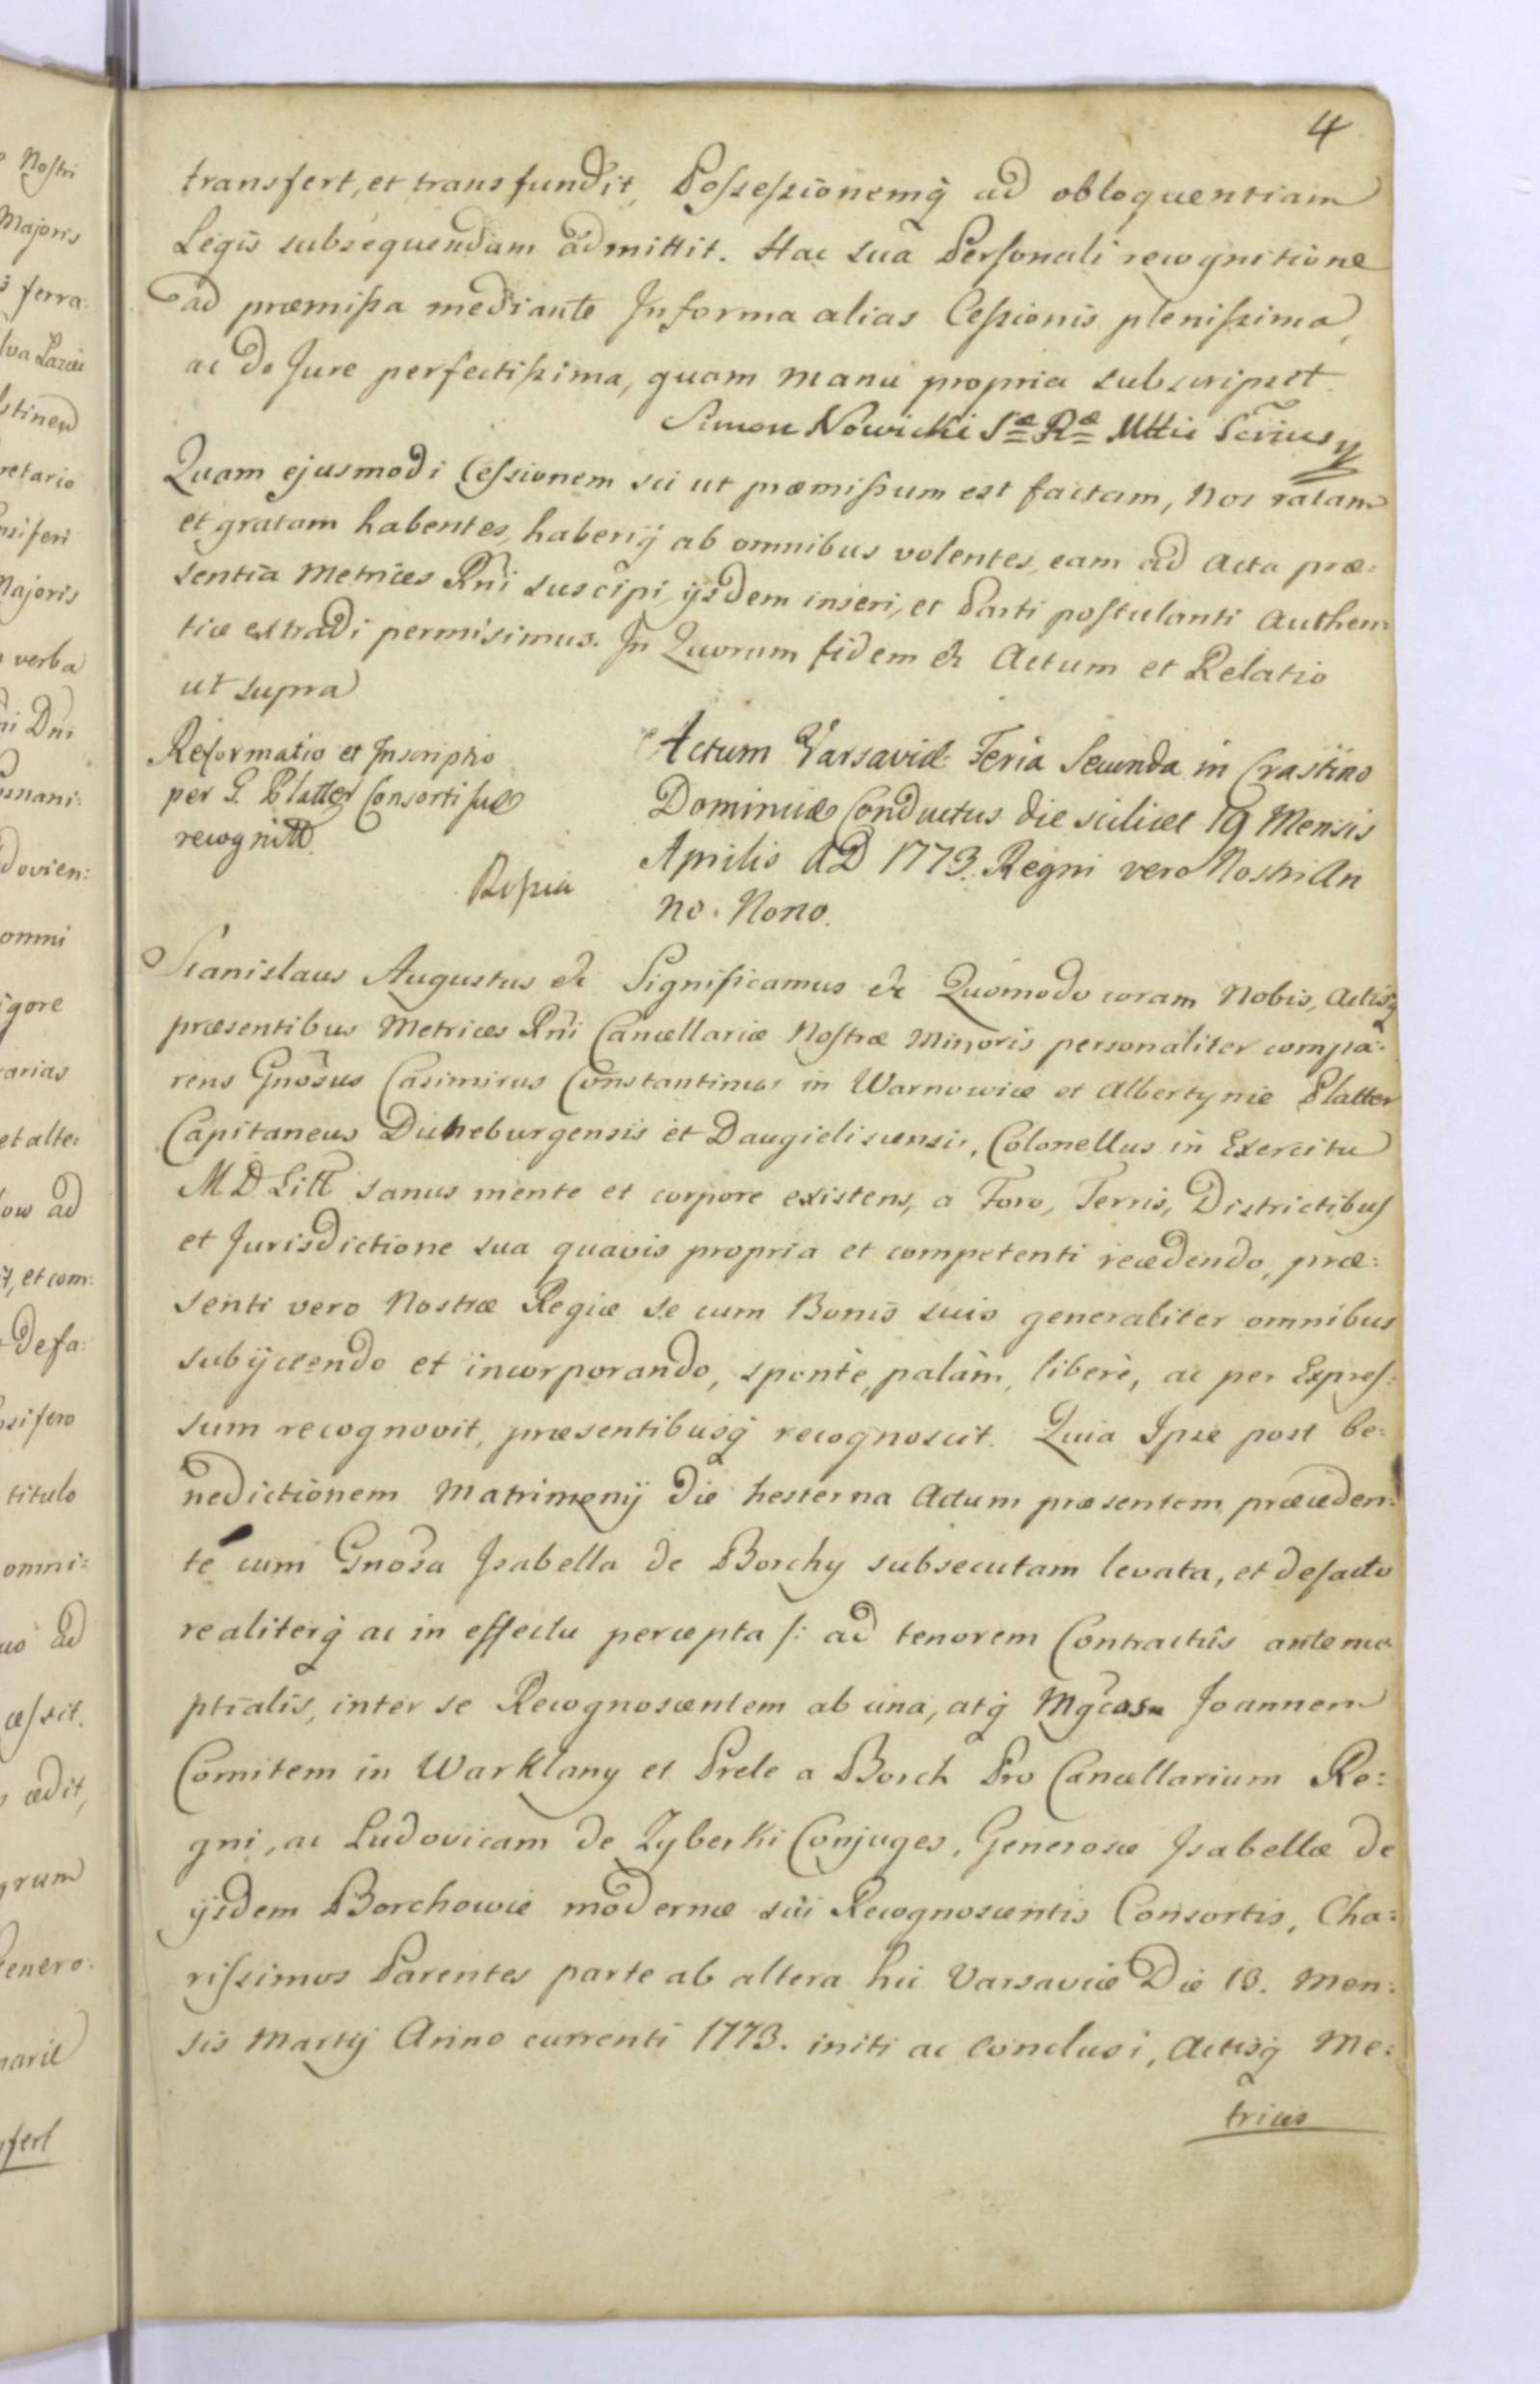 4
transfert, et transfundit, Possessionemq̃ ad obloquentiam
Legis subsequendam admittit. Hac sua Personali recognitione
ad præmissa mediante Informa alias Cessionis plenissima,
ac de Jure perfectissima, quam manu propria subscripsit.
Simon Nowicki Sæ Ræ Mttis Scrius
Quam ejusmodi Cessionem sic ut præmissum est factam, Nos ratam
et gratam habentes, haberiq̃ ab omnibus volentes, eam ad Acta præ:
sentia Metrices Rñi suscipi, ijsdem inseri, et Parti postulanti Authen:
tice extradi permisimus. In Quorum fidem &c Actum et Relatio
ut supra
Reformatio et Inscriptio
per G. Platter Consorti suæ
recognitt.
Ropia
Actum Varsaviæ Feria Secunda in Crastino
Dominicæ Conductus die scilicet 19 Mensis
Aprilis AD 1773. Regni vero Nostri An
no. Nono.
Stanislaus Augustus &c Significamus &c Quomodo coram Nobis, Actisq̃
præsentibus Metrices Rñi Cancellariæ Nostræ Minoris personaliter compa:
rens Gnõsus Casimirus Constantinus in Warnowice et Albertynie Platter
Capitaneus Duneburgensis et Daugieliscensis, Colonellus in Exercitu
M D Litt sanus mente et corpore existens, a Foro, Terris, Districtibus
et Jurisdictione sua quavis propria et competenti recedendo, præ:
senti vero Nostræ Regiæ se cum Bonis suis generaliter omnibus
subijciendo et incorporando, sponte, palàm, liberè, ac per Expres:
sum recognovit, præsentibusq̃ recognoscit. Quia Ipse post be:
nedictionem Matrimonij die hesterna Actum præsentem præceden:
te cum Gnõsa Isabella de Borchy subsecutam levata, et de facto
realiterq̃ ac in effectu percepta /: ad tenorem Contractûs antenu
ptialis, inter se Recognoscentem ab una, atq̃ Mgcos Joannem
Comitem in Warklany et Prele a Borch Pro Cancellarium Re:
gni, ac Ludovicam de Zyberki Conjuges, Generosæ Isabellæ de
ijsdem Borchowie modernæ sui Recognoscentis Consortis, Cha:
rissimos Parentes parte ab altera hic Varsaviæ Die 18. Men:
sis Martij Anno currenti 1773. initi ac conclusi, Actisq̃ Me:
trices